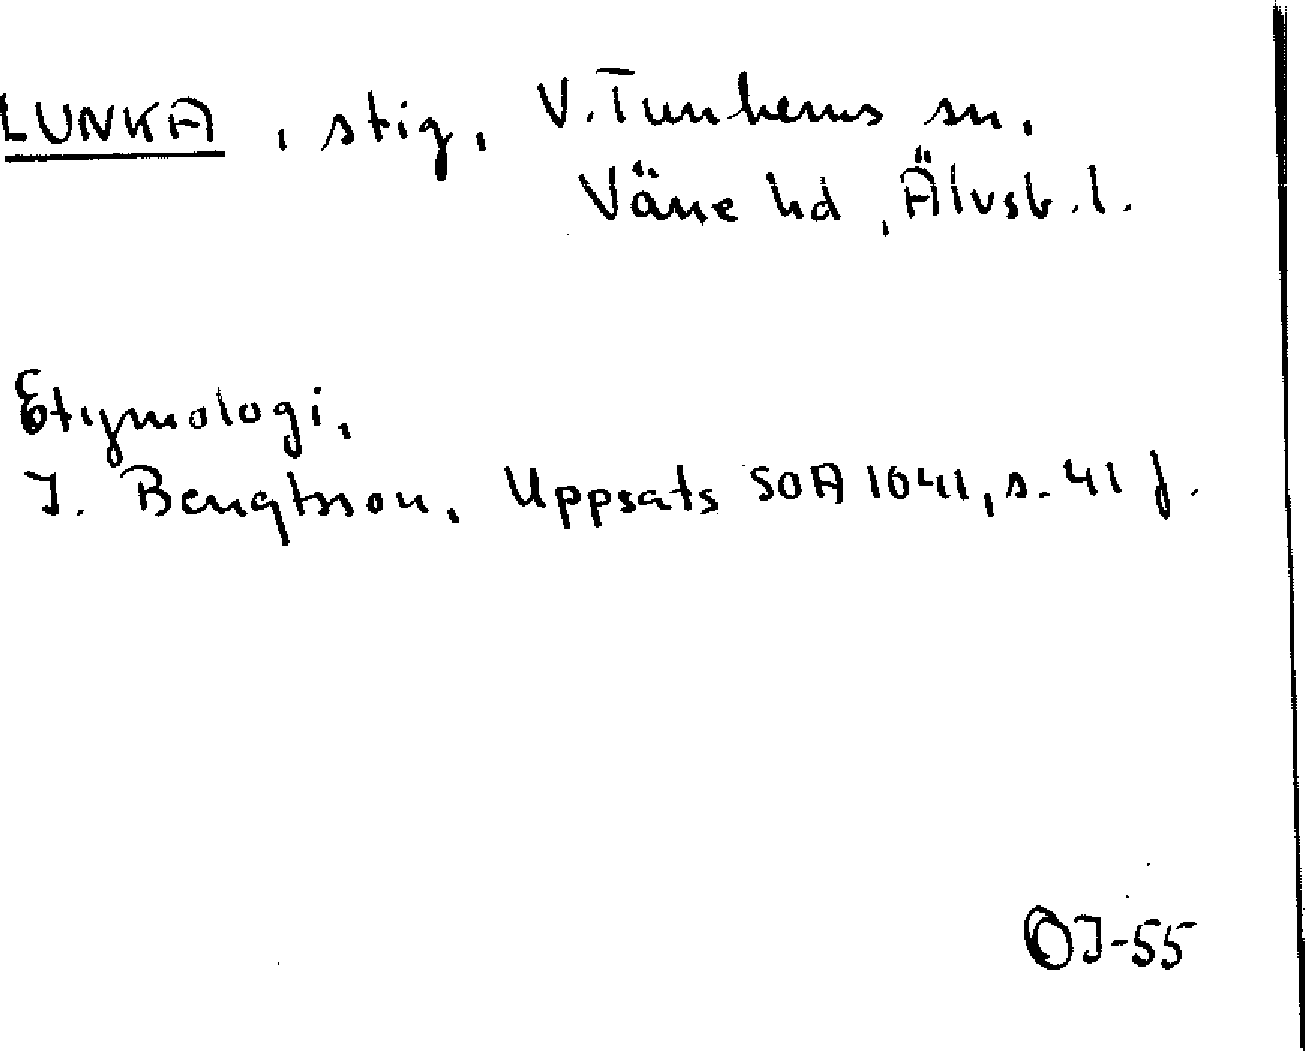 LUNKA, stig, V. Tunhems sn.
Väne hd, Älvsb. l.
Etymologi,
I. Bengtsson, Uppsats SOA 1041, s. 41 f.
OJ-55